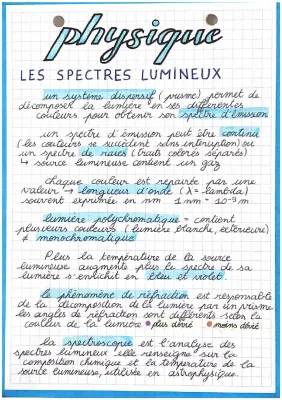 physique
LES SPECTRES LUMINEUX
un système dispersif (prisme) permet de
décomposer la lumière en ses différentes
couleurs pour obtenir son spectre d'émission
un spectre d'émission peut être continu
(les couleurs se succèdent sans interruption) ou
un spectre de raies (traits colorés séparés)
↳ source lumineuse contient un gaz
chaque couleur est repairée par une
valeur → longueur d'onde (λ = lambda)
souvent exprimée en nm 1 nm = 10⁻⁹ m
lumière polychromatique = contient
plusieurs couleurs (lumière blanche, extérieure)
≠ monochromatique
Plus la température de la source
lumineuse augmente plus le spectre de sa
lumière s'enrichit en bleu et violet.
le phénomène de réfraction est responsable
de la décomposition de la lumière par un prisme
les angles de réfraction sont différents selon la
couleur de la lumière • plus dévié • moins dévié
la spectroscopie est l'analyse des
spectres lumineux elle renseigne sur la
composition chimique et la température de la
source lumineuse, utilisée en astrophysique.